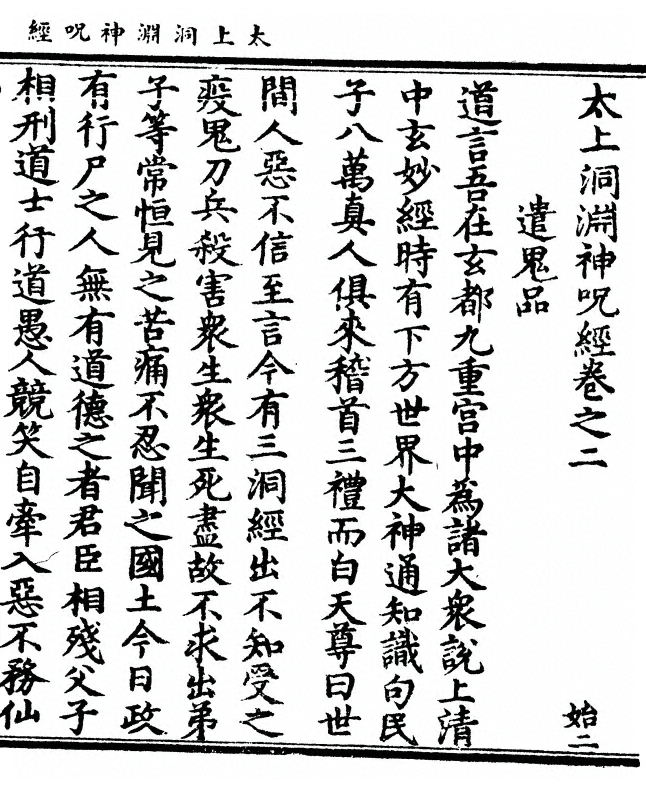 太上洞淵神呪經
太上洞淵神呪經卷之二
始二
遣鬼品
道言吾在玄都九重宮中為諸大衆說上清
中玄妙經時有下方世界大神通知識句民
子八萬真人俱來稽首三禮而白天尊曰世
間人惡不信至言今有三洞經出不知受之
疫鬼刀兵殺害衆生衆生死盡故不求出弟
子等常恒見之苦痛不忍聞之國土今日政
有行尸之人無有道德之者君臣相殘父子
相刑道士行道愚人競笑自牽入惡不務仙